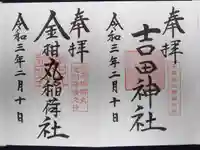 奉拝
吉田神社
令和三年二月十日
奉拝
金柑丸稲荷社
令和三年二月十日